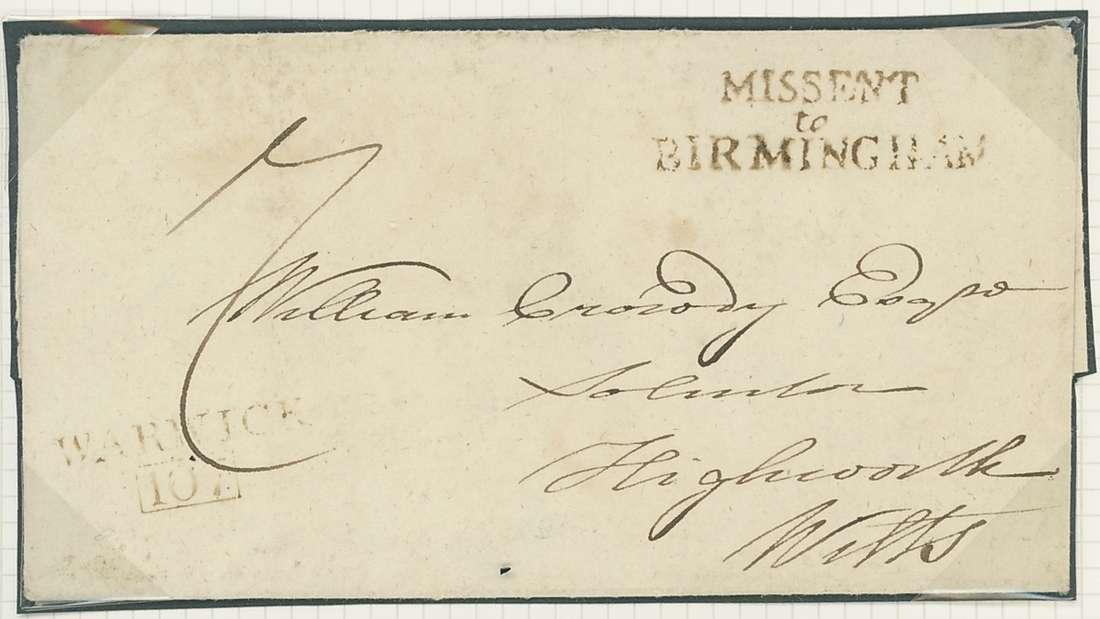 MISSENT
to
BIRMINGHAM
7
William Crowdy Esqre
Solicitor
Highworth
Wilts
WARWICK
107